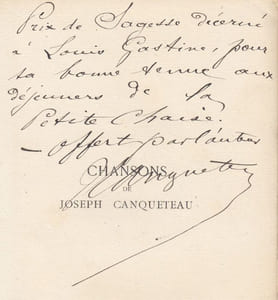 Prix de Sagesse décerné
à Louis Gastine, pour
sa bonne tenue aux
déjeuners de la
Petite Chaise.
— offert par l'auteur
CHANSONS
DE
JOSEPH CANQUETEAU
J Canqueteau